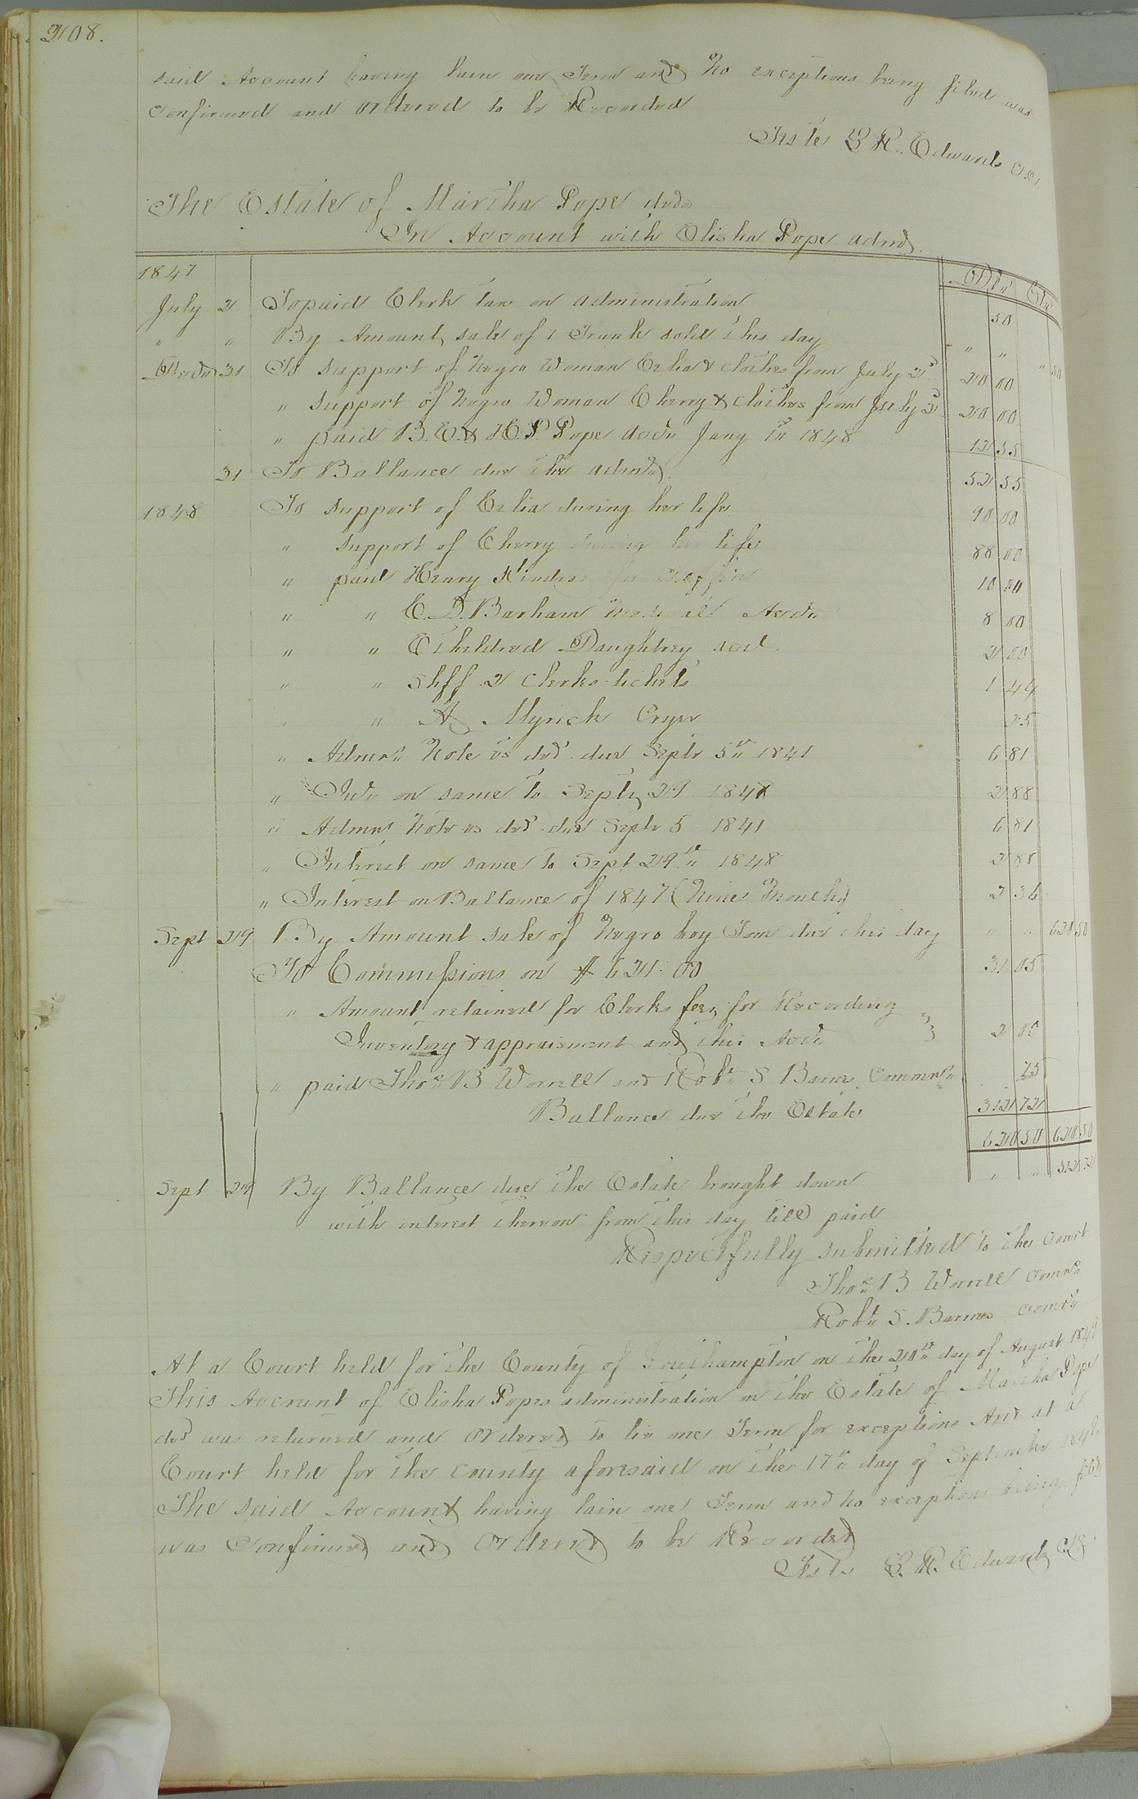 208.
said Account having lain one Term and No exceptions being filed was
Confirmed and Ordered to be Recorded
Teste L R. Edwards
The Estate of Martha Pope decd
In Account with Elisha Pope admr
1847
Dr Cr
July 2 To paid Clerk tax on administration 50
" " By Amount sale of 1 Trunk sold this day " " " 50
31 To support of Negro Woman Celia & clothes from July 2d 20 00
" support of Negro Woman Cherry & clothes from July 2d 20 00
" paid B. E. & H. P. Pope Janv 1st 1848 12 55
31 To Ballance due the admr 52 55
1848 To support of Celia during her life 90 00
" support of Cherry during her life 88 00
" paid Henry for Coffin 10 00
" " E. D. Barham 8 00
" " Etheldred Daughtrey 2 00
" " Shff 2 Clerks tickets 1 44
" " A Myrick Cryer 25
" Admrs Note vs decd due Septr 5th 1841 6 81
" Int on same to Septr 29 1848 2 88
" Admrs Note vs decd due Septr 5 1841 6 81
" Interest on same to Sept 29th 1848 2 88
" Interest on Ballance of 1847 (Nine Months) 2 36
Sept 29 By Amount sale of Negro boy Tom due this day " " 620 50
To Commissions on $ 621.00 31 05
" Amount retained for Clerks fees for Recording
Inventory & appraisment and this Acct 2 05
" paid Thos B Worrell and Robt S Barnes Commrs 75
Ballance due the Estate 312 72
620 50 620 50
Sept 29 By Ballance due the Estate brought down " " 312 72
with interest thereon from this day till paid
Respectfully submitted to the Court
Thos B Worrell Commr
Robt S. Barnes Commr
At a Court held for the County of Southampton on the 20th day of August 1849
This Account of Elisha Popes administration on the Estate of Martha Pope
decd was returned and Ordered to lie one Term for exceptions And at a
Court held for the County aforesaid on the 17th day of September 1849
The said Account having lain one Term and no exceptions being filed
was Confirmed and Ordered to be Recorded
Teste L. R. Edwards